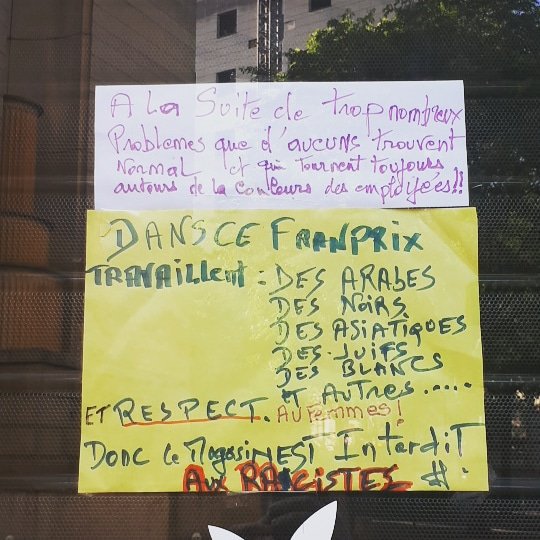 A La Suite de trop nombreux
Problemes que d'aucuns trouvent
Normal et qui tournent toujours
autours de la couleurs des employées!!
DANS CE FRANPRIX
TRAVAILLENT : DES ARABES
DES NOIRS
DES ASIATIQUES
DES JUIFS
DES BLANCS
ET AUTRES.....
ET RESPECT. AU FEMMES!
DONC Le MagasiN EST InterdiT
AUX RACISTES #.